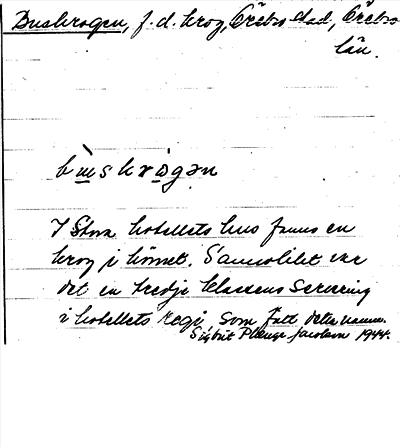 Buskrogen, f.d. krog, Örebro stad, Örebro
län.
bu̲skro̲gən
I Stora hotellets hus fanns en
krog i hörnet. Sannolikt var
det en tredje klassens servering
i hotellets regi, som fått detta namn.
Sigurd Jacobson 1944.